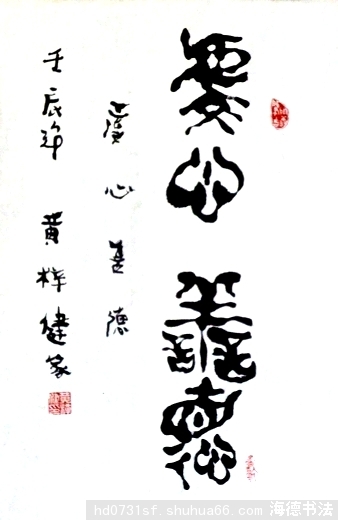 愛心善德
愛心善德
壬辰年 黄梓健篆
hd0731sf.shuhua66.com 海德书法